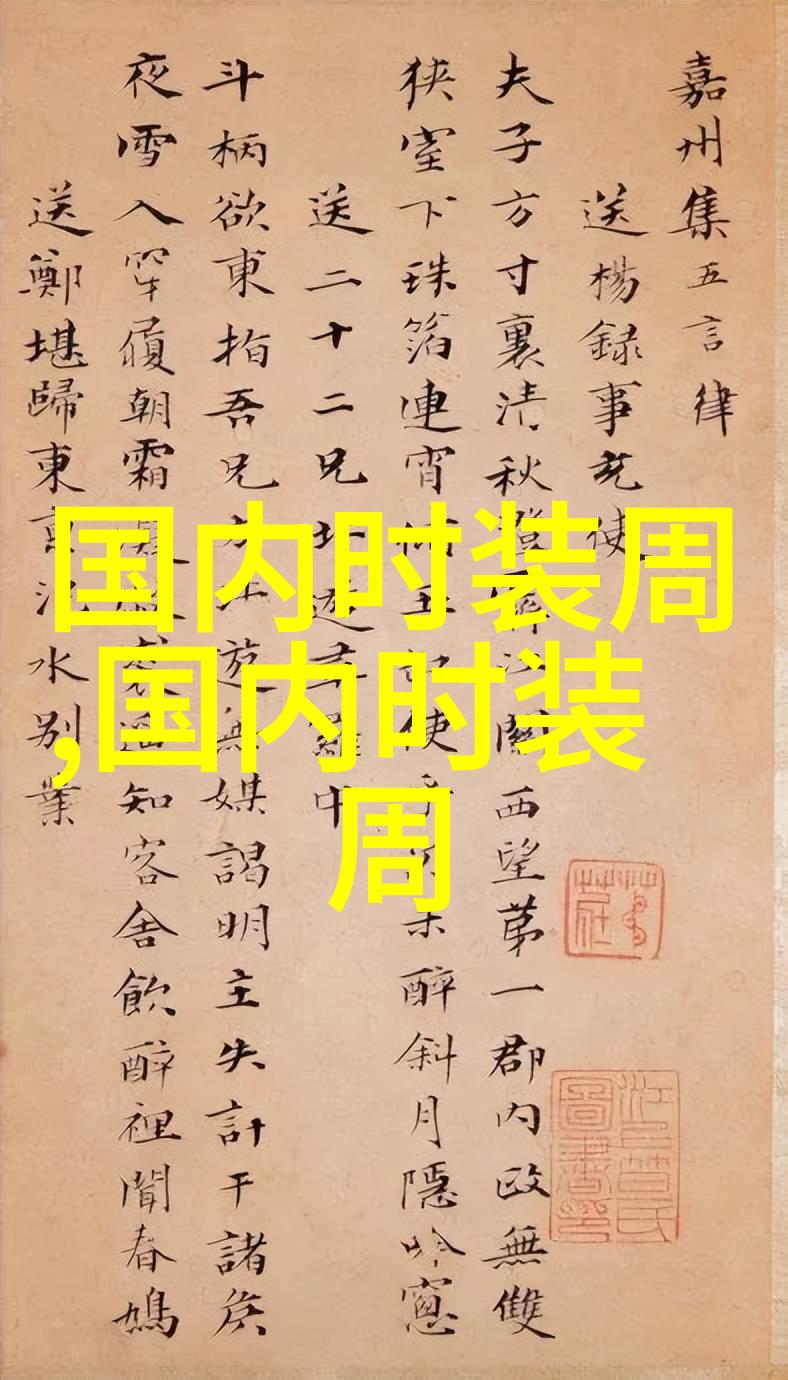 嘉州集五言律
送楊録事充使
夫子方寸裏清秋江關西望第一郡内政無雙
狹室下珠箔連宵玉使未醉斜月隱吟窻
送二十二兄北遊羅中
斗柄欲東指吾兄遊無媒謁明主失計干諸矦
夜雪入穿履朝霜裘遥知客舍飲醉裡聞春鳩
送鄭堪歸東京汜水别業
国内时装周
,国内时装
周